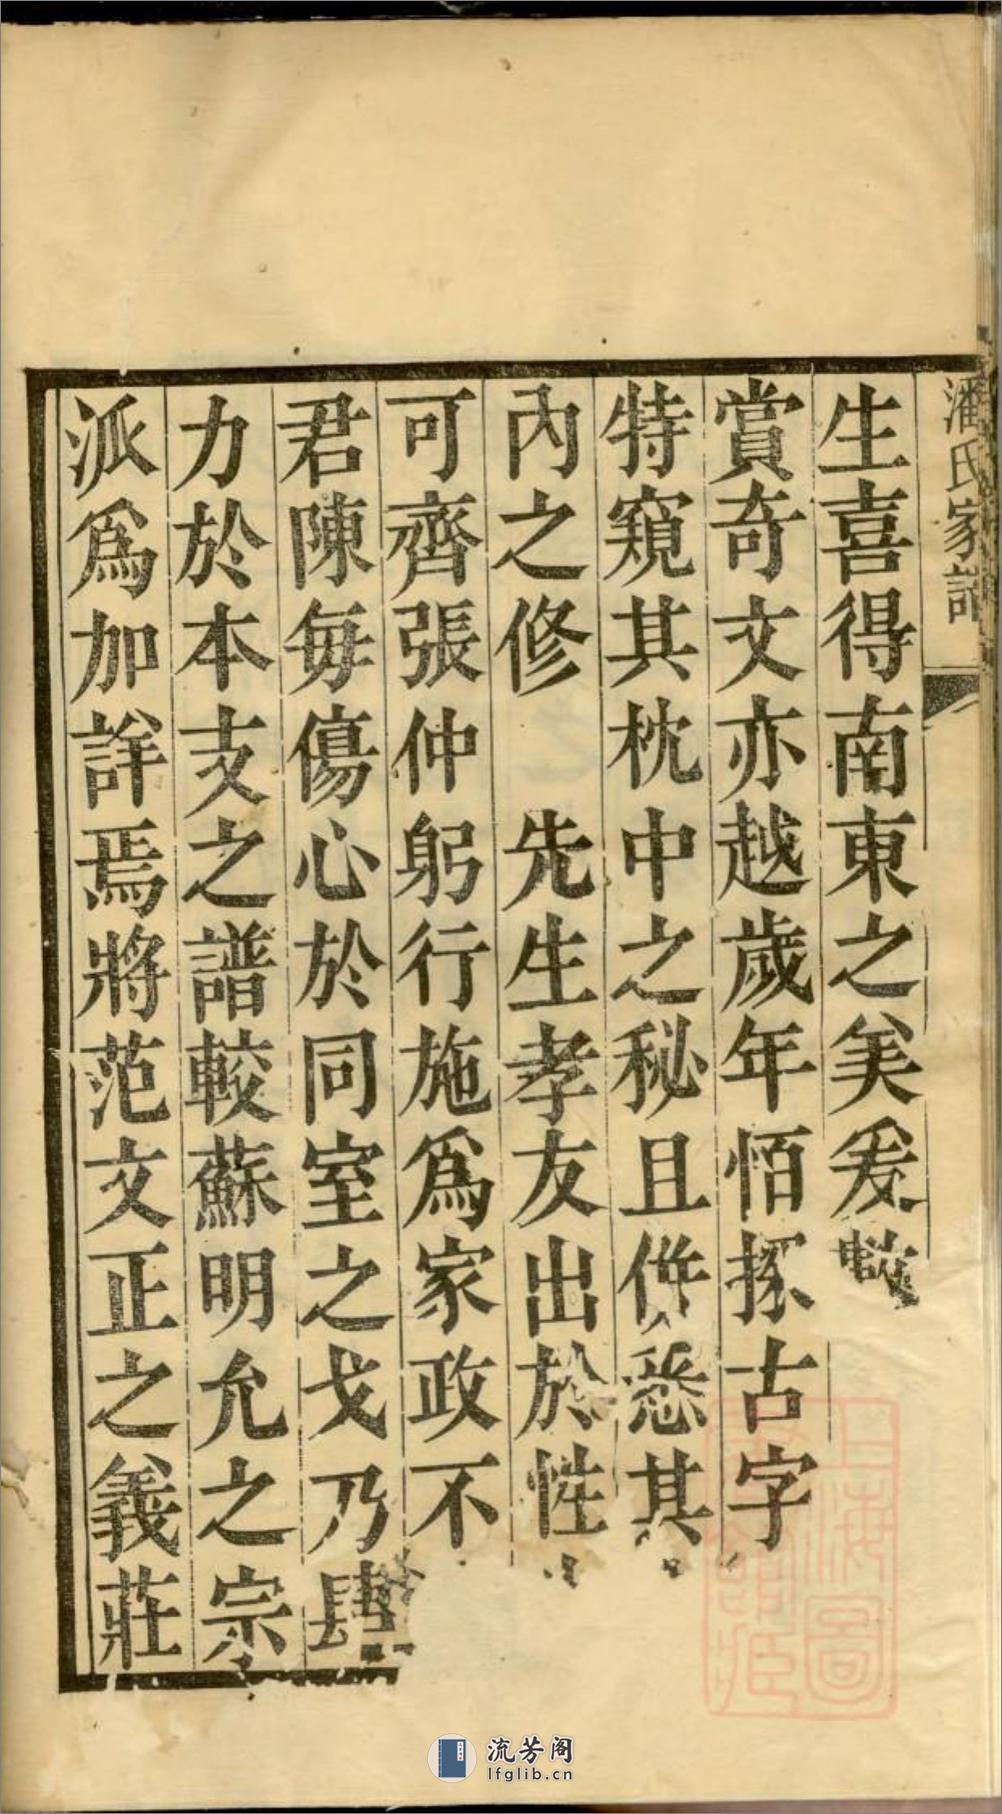 潘氏家譜
生喜得南東之美爰
賞奇文亦越歲年恓孫古字
特窺其枕中之秘且併悉其
內之修　先生孝友出於性
可齊張仲躬行施為家政不
君陳每傷心於同室之戈乃肆
力於本支之譜較蘇明允之宗
派為加詳焉將范文正之義莊
上海圖
流芳阁
lfglib.cn